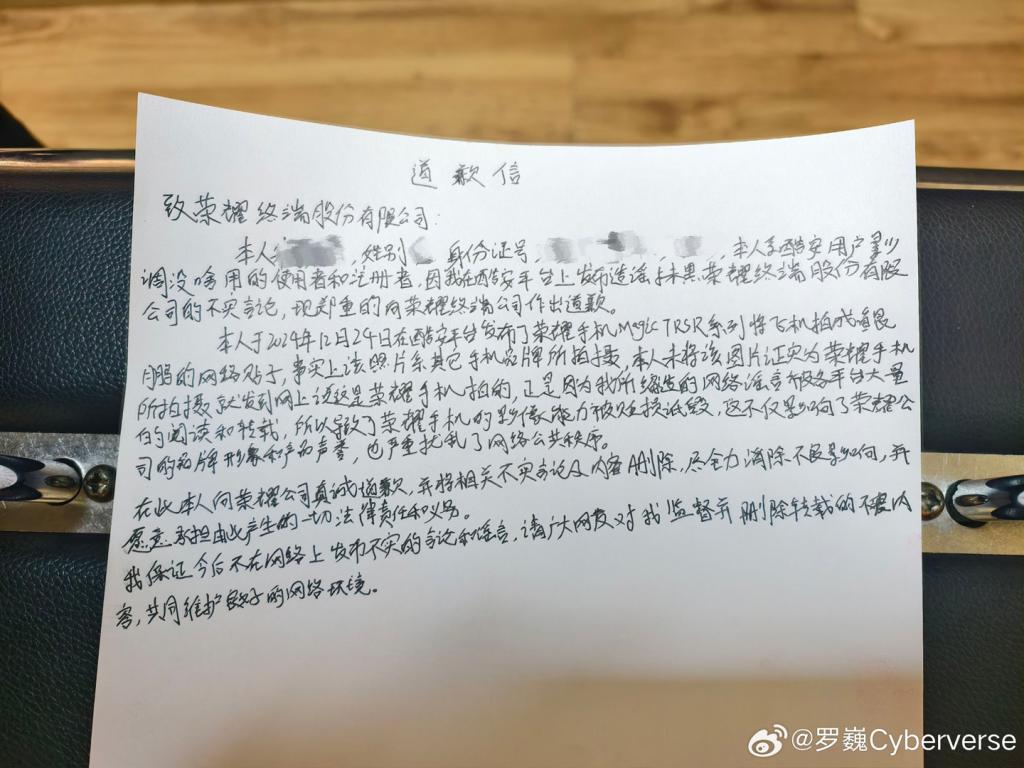 道歉信
致荣耀终端股份有限公司:
本人 ,性别 身份证号, , ,本人系酷安用户
调没啥用的使用者和注册者,因我在酷安平台上发布造谣抹黑荣耀终端股份有限
公司的不实言论,现郑重的向荣耀终端公司作出道歉。
本人于2024年12月24日在酷安平台发布了荣耀手机Magic7RSR系列将飞机拍成鲲
鹏的网络贴子,事实上该照片系其它手机品牌所拍摄,本人未将该图片证实为荣耀手机
所拍摄就发到网上说这是荣耀手机拍的,正是因为我所编造的网络谣言被各平台大量
的阅读和转载,所以导致了荣耀手机的影像能力被贬损诋毁,这不仅影响了荣耀公
司的品牌形象和产品声誉,也严重扰乱了网络公共秩序。
在此本人向荣耀公司真诚道歉,并将相关不实言论及内容删除,尽全力消除不良影响,并
愿意承担由此产生的一切法律责任和义务。
我保证今后不在网络上发布不实的言论和谣言,请广大网友对我监督并删除转载的不良内
容,共同维护良好的网络环境。
@罗巍Cyberverse